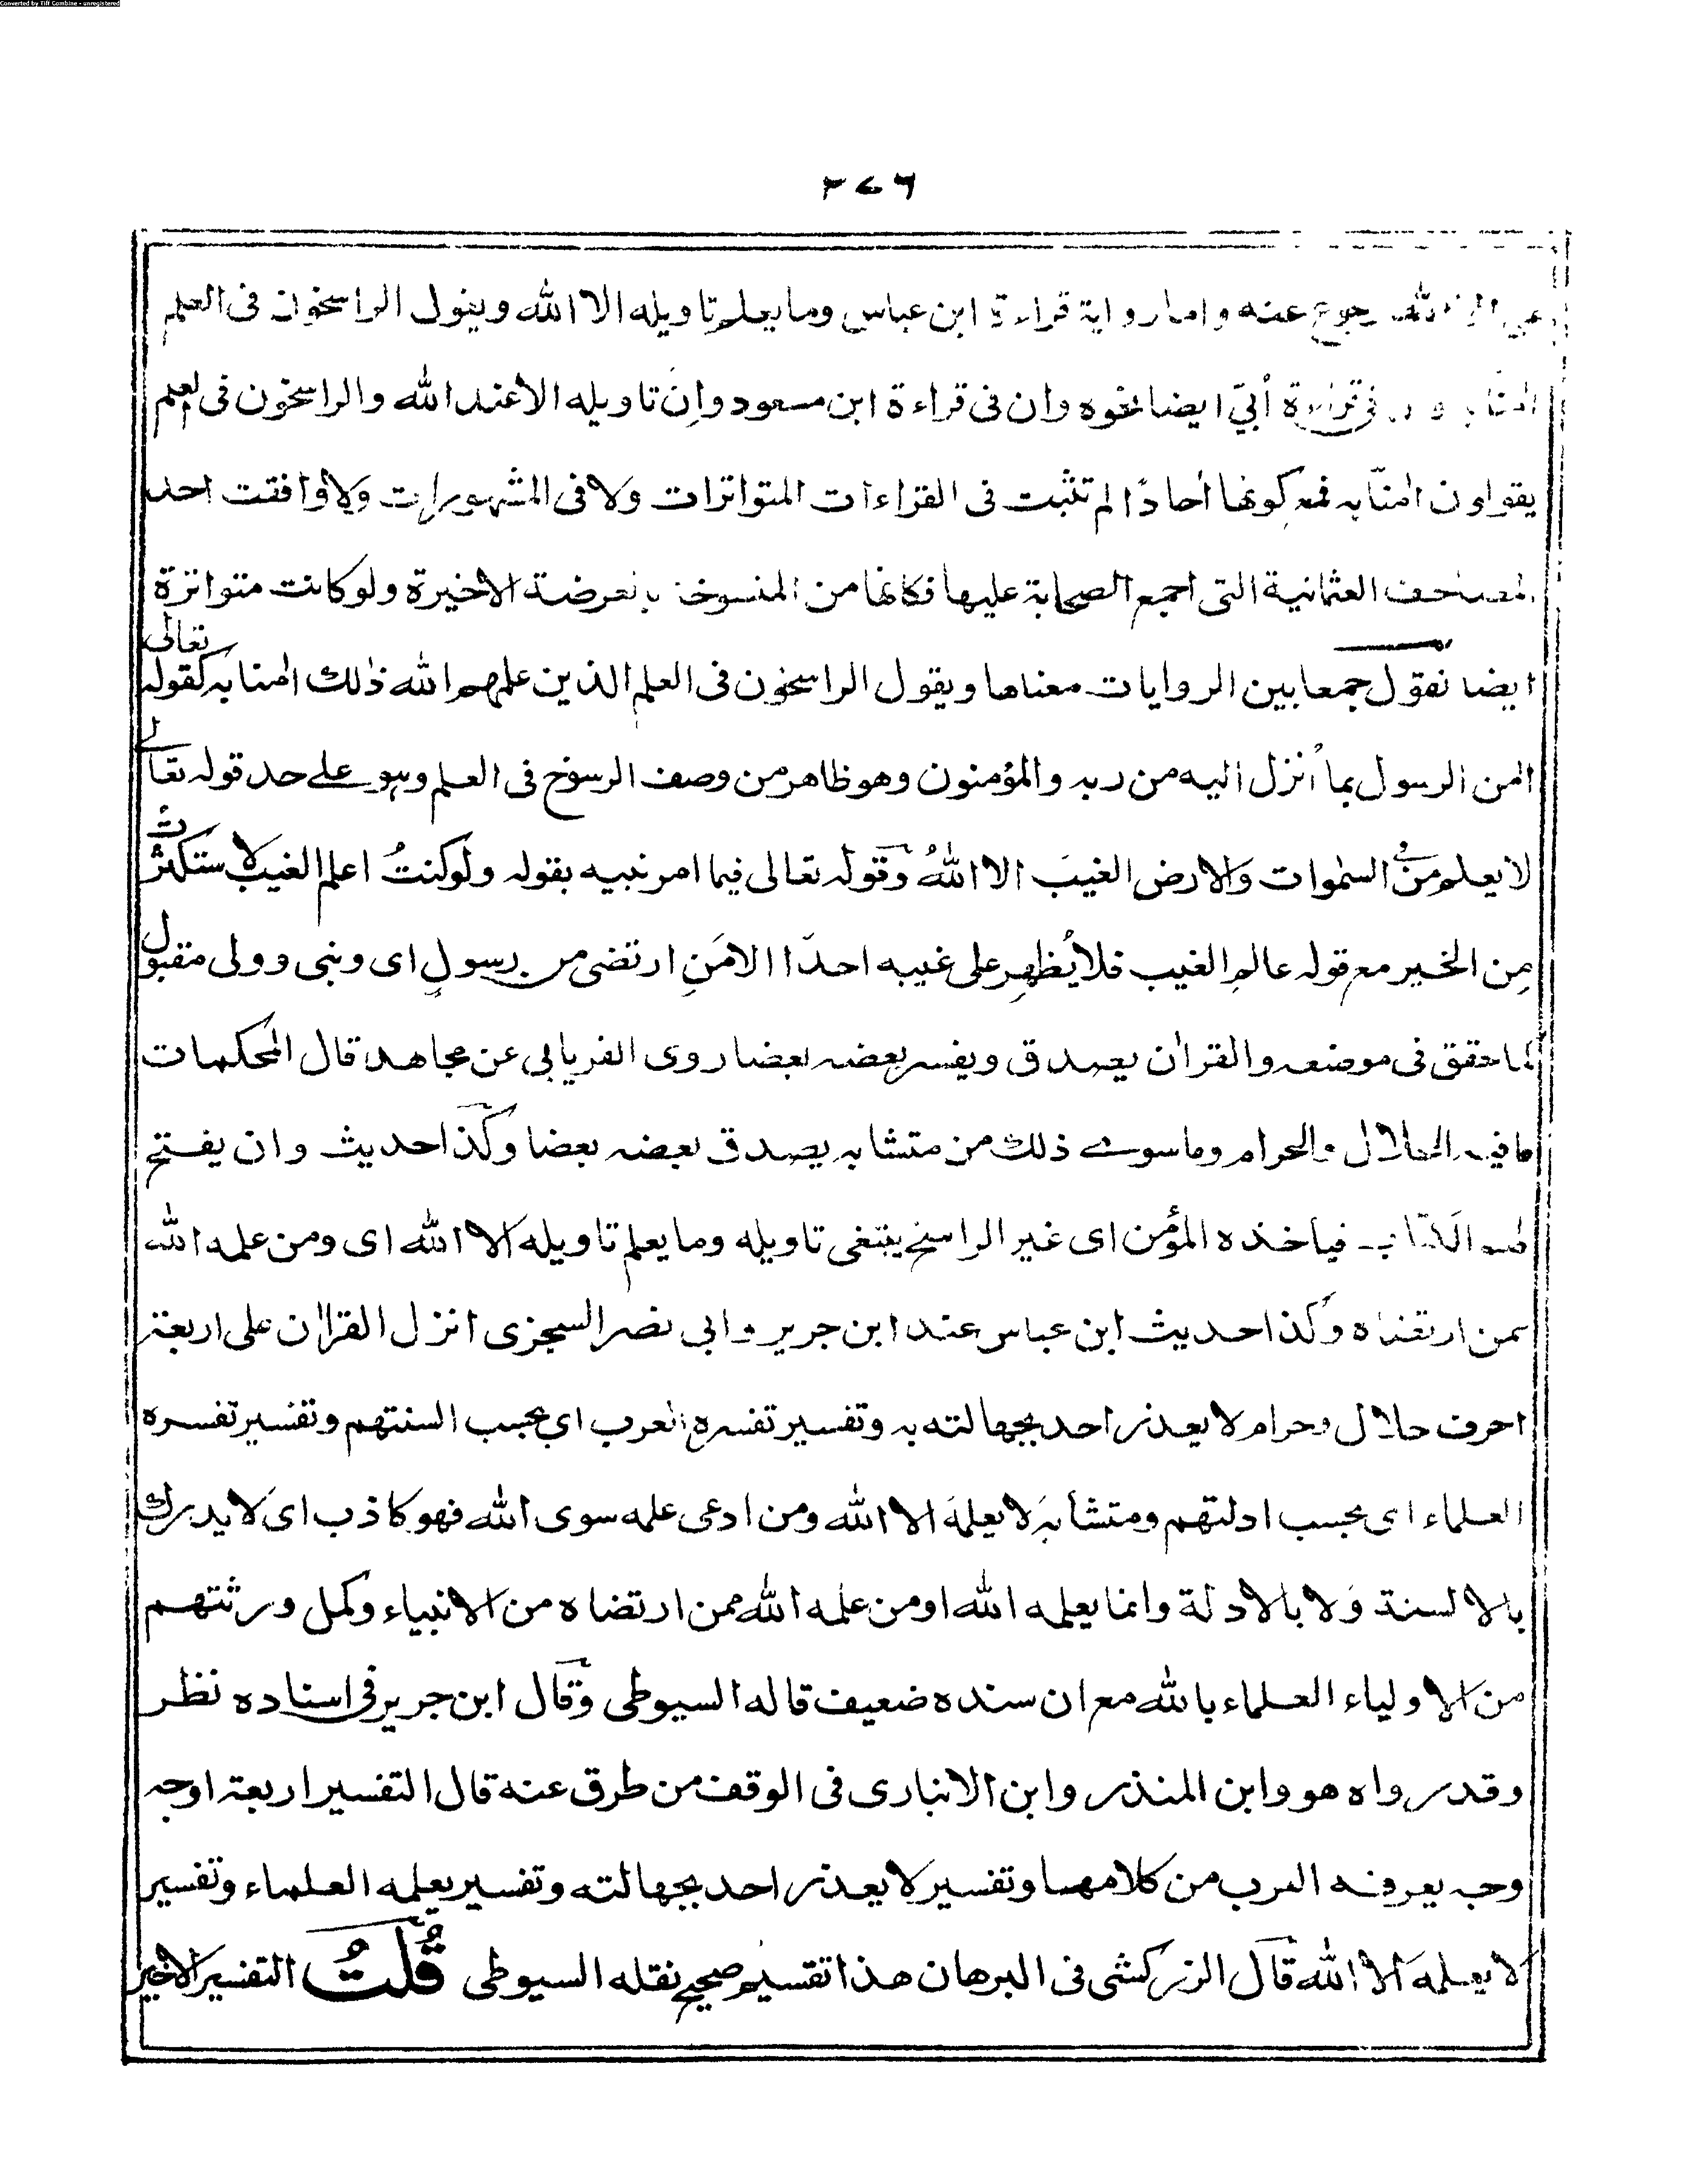 Converted by Tiff Combine - unregistered
٢٧٦
رجوع عنه واما رواية قراءة ابن عباس وما يعلم تاويله الا الله ويقول الراسخون فى العلم
فى قراءة أبيّ ايضا نحوه وان فى قراءة ابن مسعود وإن تاويله الا عند الله والراسخون فى العلم
يقولون اٰمنّا به فمع كونها اٰحادًا لم تثبت فى القراءات المتواترات ولا فى المشهورات ولا وافقت احد
المصاحف العثمانية التى اجمع الصحابة عليها فكانها من المنسوخة بالعرضة الاخيرة ولو كانت متواترة
ايضا نقول جمعا بين الروايات معناها ويقول الراسخون فى العلم الذين علمهم الله ذٰلك اٰمنا به كقوله تعالى
اٰمن الرسول بما أنزل اليه من ربه والمؤمنون وهو ظاهر من وصف الرسوخ فى العلم وهو على حد قوله تعالى
لا يعلم من فى السمٰوات والارض الغيبَ الا اللهُ وقوله تعالى فيما امر نبيه بقوله ولو كنتُ اعلم الغيب لاستكثرت
مِن الخير مع قوله عالم الغيب فلا يُظهِر على غيبه احدًا الا مَنِ ارتضى من رسولٍ اى ونبى وولى مقبول
كما حقق فى موضعه والقراٰن يصدق ويفسر بعضه بعضا روى الفريابى عن مجاهد قال المحكمات
ما فيه الحلال والحرام وما سوى ذلك من متشابه يصدق بعضه بعضا وكذا حديث وان يفتح
لهم الكتاب فياخذه المؤمن اى غير الراسخ يبتغى تاويله وما يعلم تاويله الا الله اى ومن علمه الله
ممن ارتضاه وكذا حديث ابن عباس عند ابن جرير وابى نصر السجزى انزل القراٰن على اربعة
احرف حلال وحرام لا يعذر احد بجهالته به وتفسير تفسره العرب اى بحسب السنتهم وتفسير تفسره
العلماء اى بحسب ادلتهم ومتشابه لا يعلمه الا الله ومن ادعى علمه سوى الله فهو كاذب اى لا يدرك
بالالسنة ولا بالادلة وانما يعلمه الله او من علمه الله ممن ارتضاه من الانبياء وكمل ورثتهم
من الاولياء العلماء بالله مع ان سنده ضعيف قاله السيوطى وقال ابن جرير فى اسناده نظر
وقد رواه هو وابن المنذر وابن الانبارى فى الوقف من طرق عنه قال التفسير اربعة اوجه
وجه يعرفه العرب من كلامها وتفسير لا يعذر احد بجهالته وتفسير يعلمه العلماء وتفسير
لا يعلمه الا الله قال الزركشى فى البرهان هذا تقسيم صحيح نقله السيوطى قُلتُ التفسير الاخير